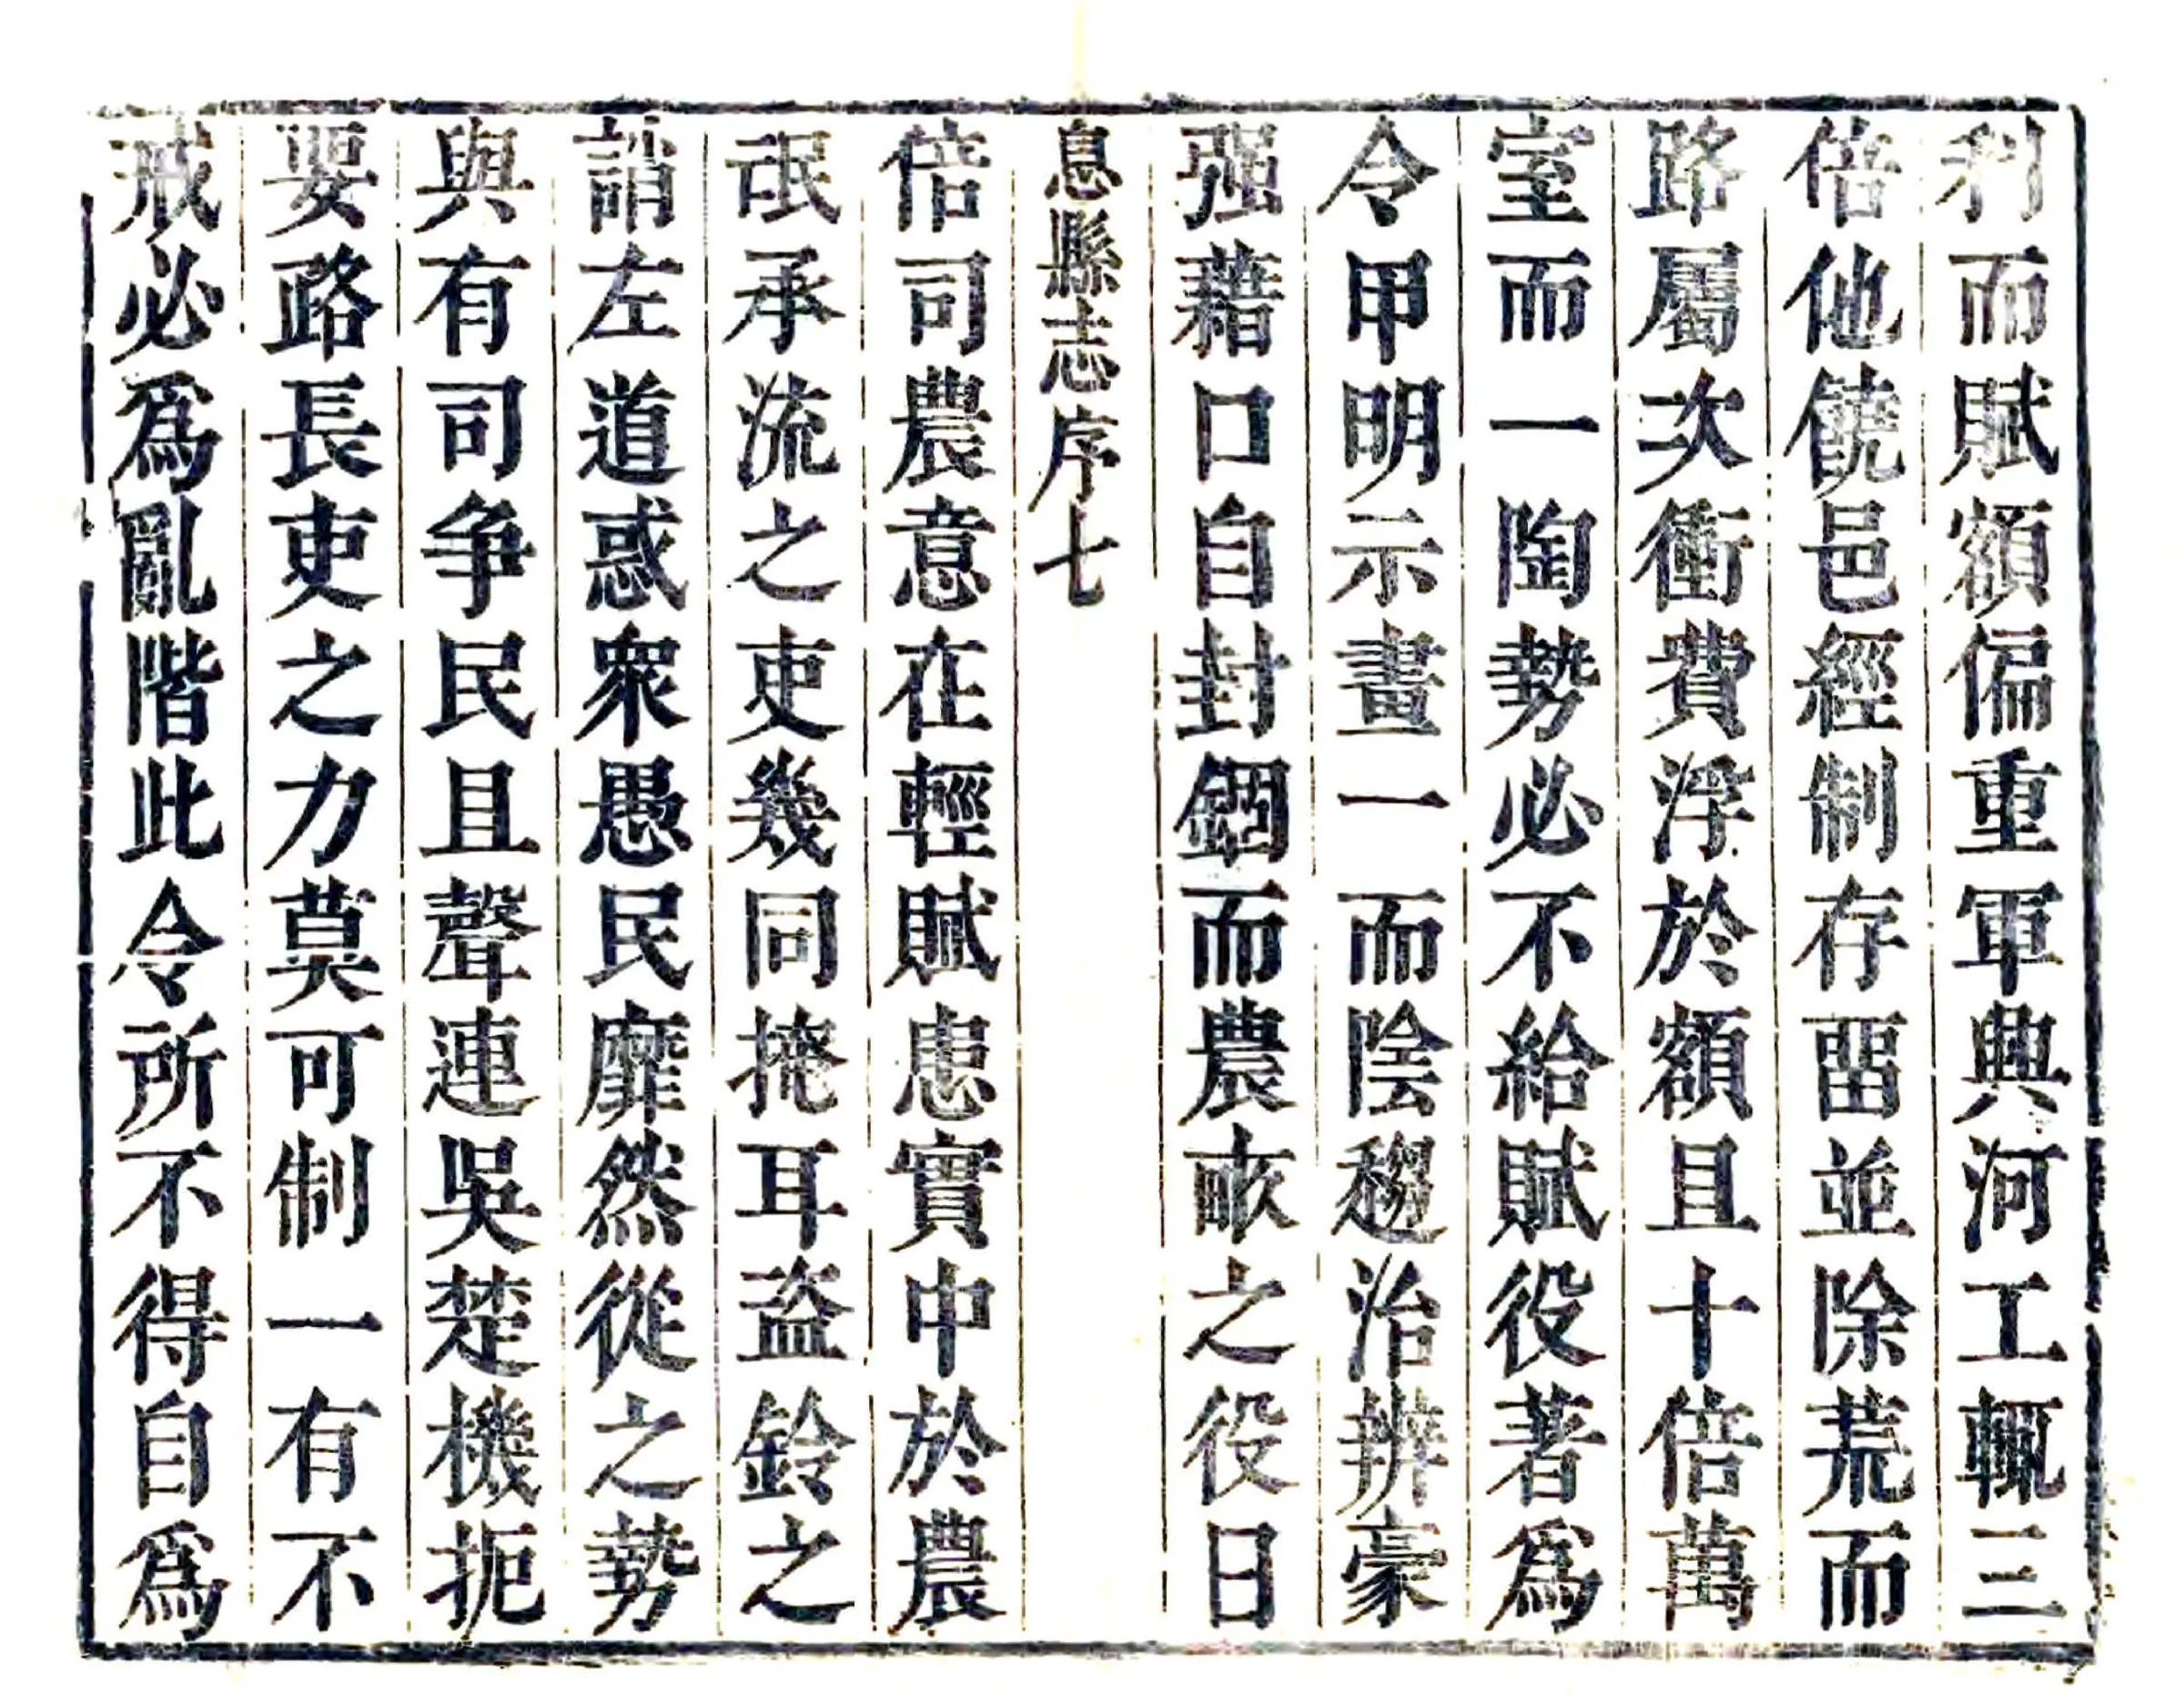 利而賦額偏重軍興河工輒三
倍他饒邑經制存畱並除荒而
路屬次衝費浮於額且十倍萬
室而一陶勢必不給賦役著爲
令甲明示畫一而陰治辨豪
强藉口自封錮而農畝之役日
息縣志序七
倍司農意在輕賦患實中於農
氓承流之吏幾同掩耳盗鈴之
誚左道惑衆愚民靡然從之勢
與有司争民且聲連吳楚機扼
要路長吏之力莫可制一有不
戒必爲亂階此令所不得自爲